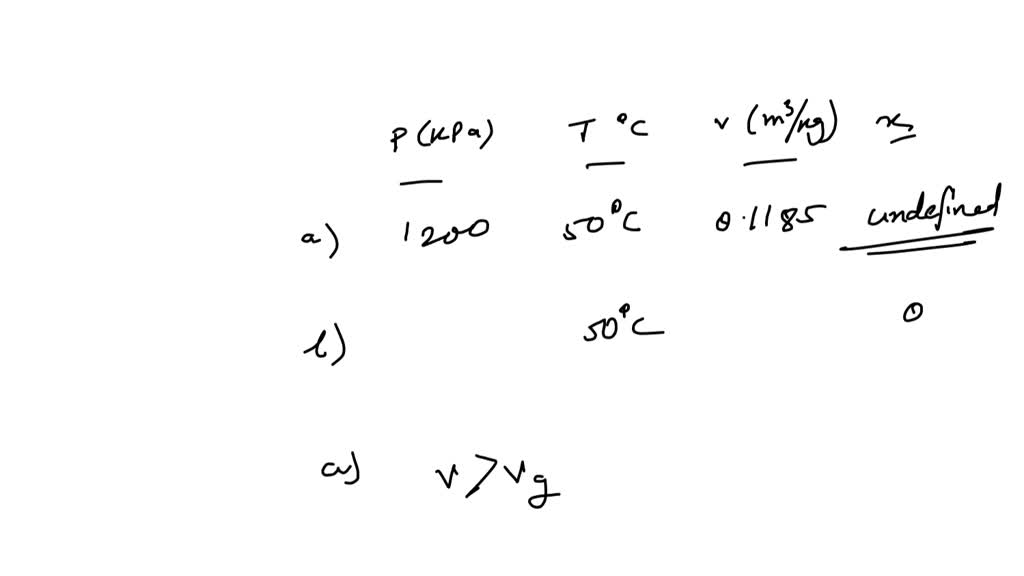 P (KPa) T °C v (m³/kg) x
a) 1200 50°C 0.1185 undefined
b) 50°C 0
a) v > vg